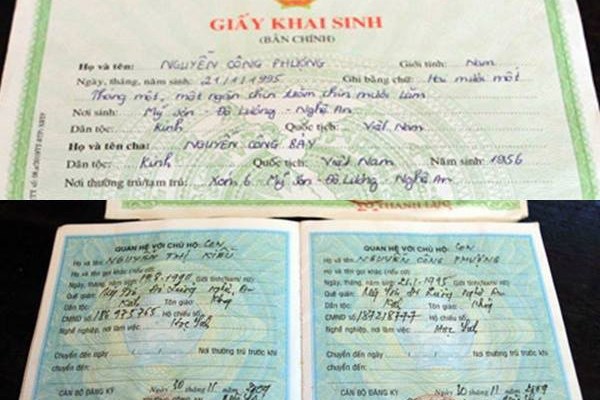 GIẤY KHAI SINH
(BẢN CHÍNH)
Họ và tên: NGUYỄN CÔNG PHƯỢNG Giới tính: Nam
Ngày, tháng, năm sinh: 21/1/1995 Ghi bằng chữ: Hai mươi mốt
Tháng một, một ngàn chín trăm chín mươi lăm
Nơi sinh: Mỹ Sơn - Đô Lương - Nghệ An
Dân tộc: Kinh Quốc tịch: Việt Nam
Họ và tên cha: NGUYỄN CÔNG BẢY
Dân tộc: Kinh Quốc tịch: Việt Nam Năm sinh: 1956
Nơi thường trú/tạm trú: Xóm 6 - Mỹ Sơn - Đô Lương - Nghệ An
QUAN HỆ VỚI CHỦ HỘ: Con
Họ và tên: NGUYỄN THỊ KIỀU
Họ và tên gọi khác (nếu có):
Ngày, tháng, năm sinh: 1990 Giới tính(Nam/Nữ)
Quê quán: Đô Lương Nghệ An
Dân tộc: Kinh Tôn giáo: Không
CMND số: 186975765 Hộ chiếu số:
Nghề nghiệp, nơi làm việc: Học sinh
Chuyển đến ngày Nơi thường trú trước khi
chuyển đến:
CÁN BỘ ĐĂNG KÝ Ngày 30 tháng 11 năm 2009
QUAN HỆ VỚI CHỦ HỘ: Con
Họ và tên: NGUYỄN CÔNG PHƯỢNG
Họ và tên gọi khác (nếu có):
Ngày, tháng, năm sinh: 21.1.1995 Giới tính(Nam/Nữ)
Quê quán: Đô Lương Nghệ An
Dân tộc: Kinh Tôn giáo: Không
CMND số: 187218797 Hộ chiếu số:
Nghề nghiệp, nơi làm việc: Học sinh
Chuyển đến ngày Nơi thường trú trước khi
chuyển đến:
CÁN BỘ ĐĂNG KÝ Ngày 30 tháng 11 năm 2009